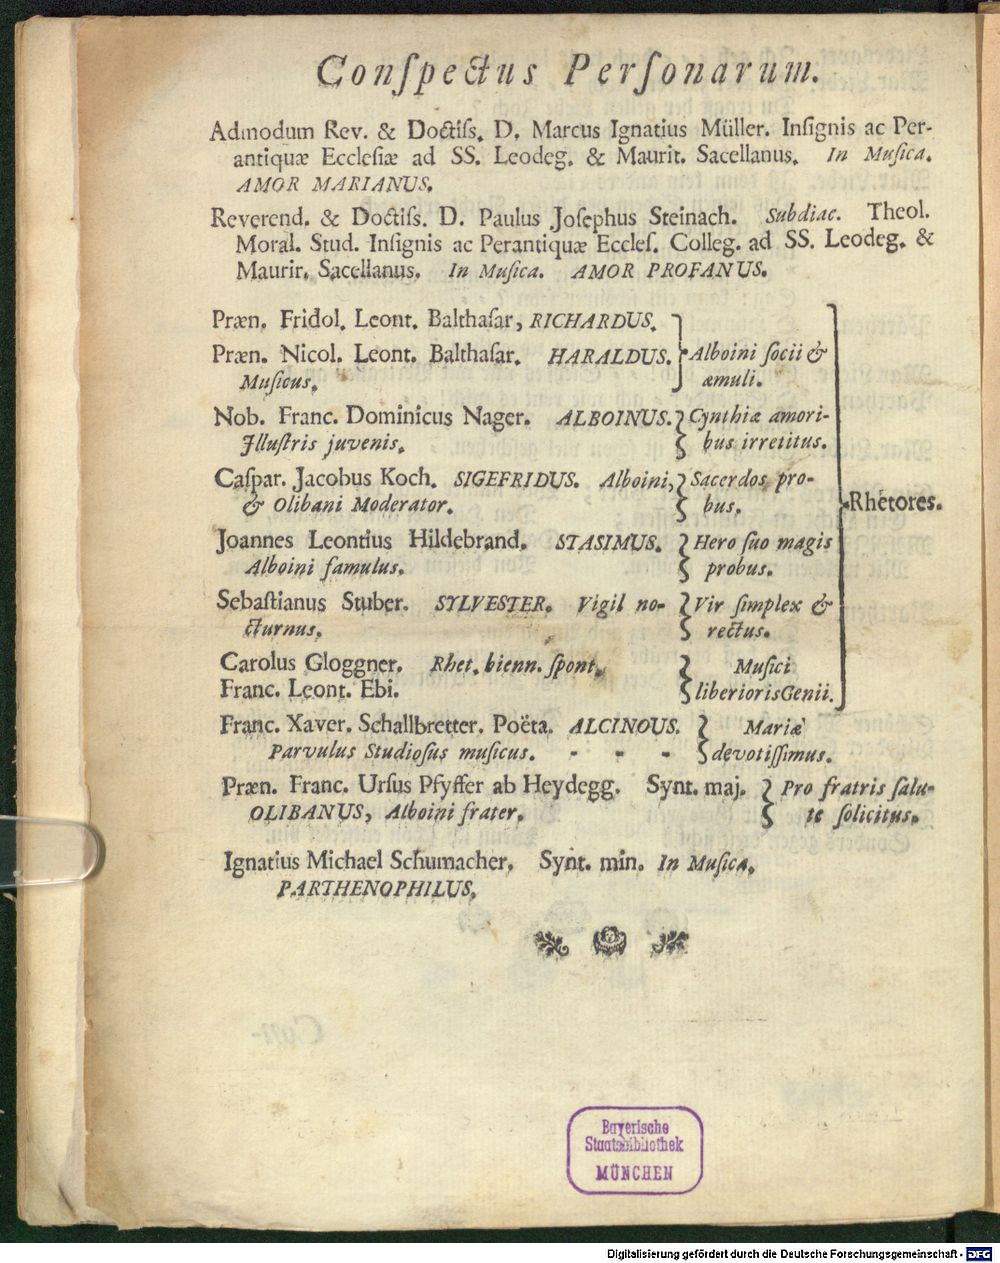 Conſpectus Perſonarum.
Admodum Rev. & Doctiſs. D. Marcus Ignatius Müller. Inſignis ac Per-
antiquæ Eccleſiæ ad SS. Leodeg. & Maurit. Sacellanus. In Muſica.
AMOR MARIANUS.
Reverend. & Doctiſs. D. Paulus Joſephus Steinach. Subdiac. Theol.
Moral. Stud. Inſignis ac Perantiquæ Eccleſ. Colleg. ad SS. Leodeg. &
Maurit. Sacellanus. In Muſica. AMOR PROFANUS.
Præn. Fridol. Leont. Balthaſar, RICHARDUS.
Præn. Nicol. Leont. Balthaſar. HARALDUS. Alboini ſocii &
Muſicus. æmuli.
Nob. Franc. Dominicus Nager. ALBOINUS. Cynthiæ amori-
Illuſtris juvenis. bus irretitus.
Caſpar. Jacobus Koch. SIGEFRIDUS. Alboini, Sacerdos pro-
& Olibani Moderator. bus.
Rhetores.
Joannes Leontius Hildebrand. STASIMUS. Hero ſuo magis
Alboini famulus. probus.
Sebaſtianus Stuber. SYLVESTER. Vigil no- Vir ſimplex &
cturnus. rectus.
Carolus Gloggner. Rhet. bienn. ſpont. Muſici
Franc. Leont. Ebi. liberioris Genii.
Franc. Xaver. Schallbretter. Poëta. ALCINOUS. Mariæ
Parvulus Studioſus muſicus. - - - devotiſſimus.
Præn. Franc. Urſus Pfyffer ab Heydegg. Synt. maj. Pro fratris ſalu-
OLIBANUS, Alboini frater. te ſolicitus.
Ignatius Michael Schumacher. Synt. min. In Muſica.
PARTHENOPHILUS.
Bayerische
Staatsbibliothek
MÜNCHEN
Digitalisierung gefördert durch die Deutsche Forschungsgemeinschaft - DFG